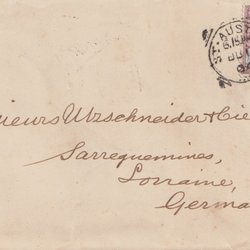 ST. AUS
sieurs Utzschneider & Cie
Sarreguemines,
Lorraine,
Germa